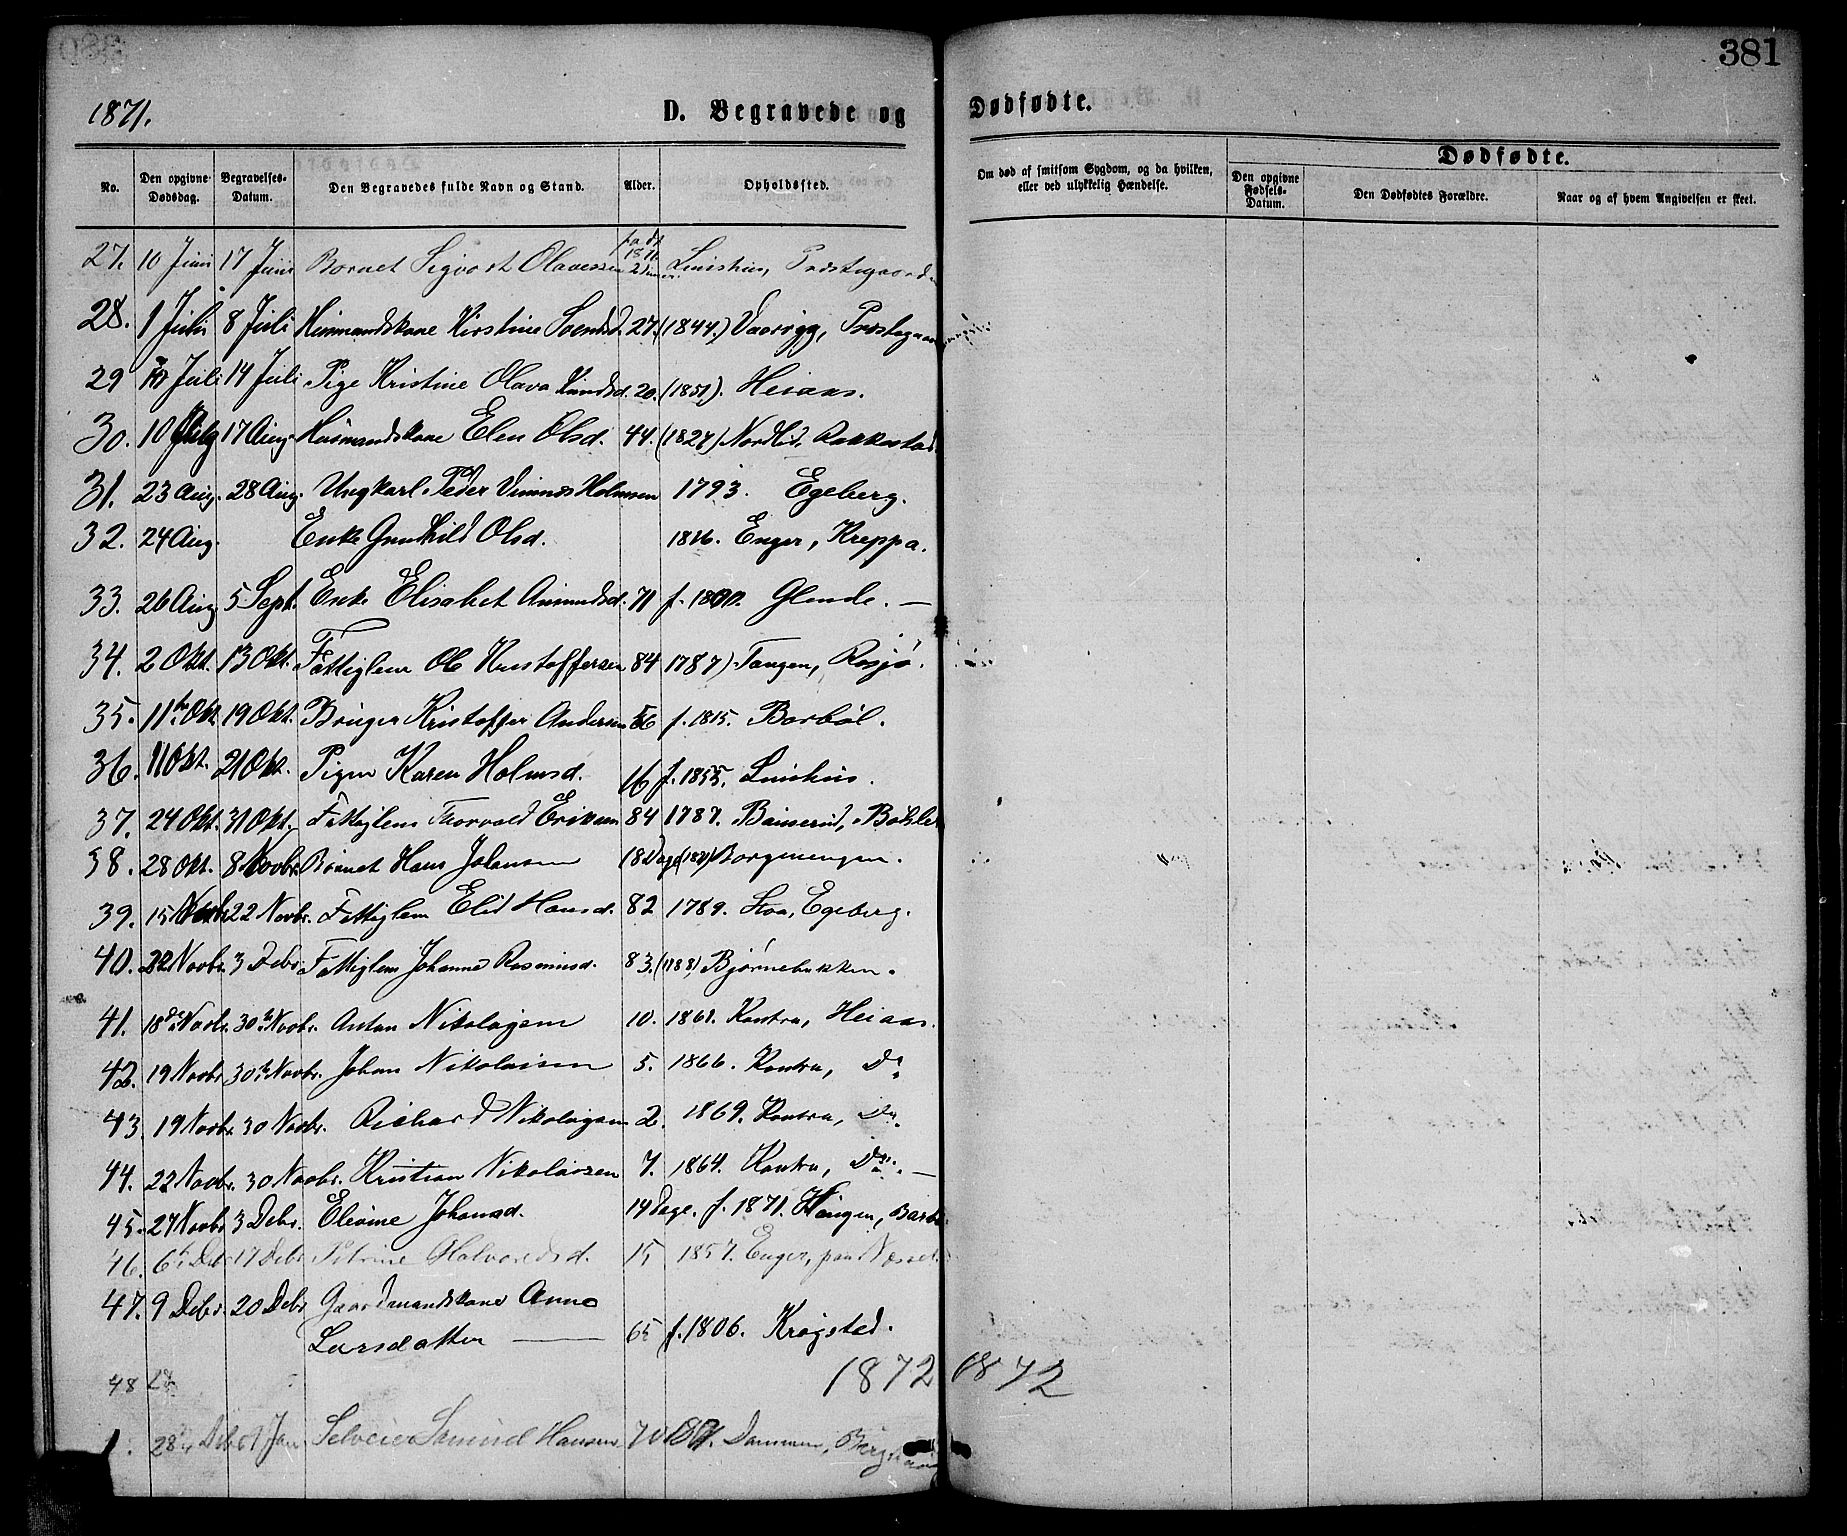 381
1871.
D. Begravede og Dødfødte.
No. Den opgivne Dødsdag. Begravelses-Datum. Den Begravedes fulde Navn og Stand. Alder. Opholdssted.
Om død af smitsom Sygdom, og da hvilken, eller ved ulykkelig Hændelse.
Dødfødte.
Den opgivne Fødsels-Datum. Den Dødfødtes Forældre. Naar og af hvem Angivelsen er skeet.
27. 10 Juni 17 Juni Barnet Sigvart Olavessen
28. 1 Juli 8 Juli Husmandskone Kirstine 27. (1844)
29 Juli 14 Juli Pige Kristine Olava Knudsd. 20. (1851). Heiaas.
30. 10 17 Aug. Husmandskone Elen Olsd. 44. (1827) Nordlid, Rakkestad
31. 23 Aug. 28 Aug. Ungkarl Peder Holmsen 1793. Egeberg.
32. 24 Aug. Enke Gunhild Olsd. 1816. Enger, Kreppa.
33. 26 Aug 5 Sept. Enke Elisabet Amundsd. 71 f. 1800. Glende. —
34. 2 Okt. 13 Okt. Fattiglem Ole Kristoffersen 84 1787) Tangen, Rosjø.
35. 11te Okt. 19 Okt. Bruger Kristoffer Andersen 56 f. 1815. Barbøl.
36. 11 Okt. 21 Okt. Pigen Karen Holmsd. 16 f. 1855.
37. 24 Okt. 31 Okt. Fattiglem Thorvald Eriksen 84 1787.
38. 28 Okt. 8 Novbr. Barnet Hans Johansen 18 Dage (1871) Borgenengen.
39. 15 22 Novbr. Fattiglem Elid Hansd. 82 1789. Egeberg.
40. 22 Novbr. 3 Debr. Fattiglem Johanne Rasmusd. 83. (1788) Bjørnebakken.
41. 18de Novbr. 30te Novbr. Anton Nikolaysen 10. 1861. Kontra, Heiaas.
42. 19 Novbr 30te Novbr. Johan Nikolaisen 5. 1866. Kontra, Do
43. 19 Novbr. 30 Novbr. Richard Nikolaysen 2. 1869. Kontra, Do.
44. 22 Novbr. 30 Novbr. Kristian Nikolaisen 7. 1864. Kontra, Do. —
45. 27 Novbr. 3 Debr. Elevine Johansd. 14 Dage. f. 1871.
46. 6te Debr 17 Debr Petrine Halvorsd. 15 1857. Enger, paa
47. 9 Debr. 20 Debr Gaardmandskone Anne
Larsdatter — 65 f. 1806. Krogsted.
48
1872 1872
1. 28 Debr Jan Samuel Hansen 70